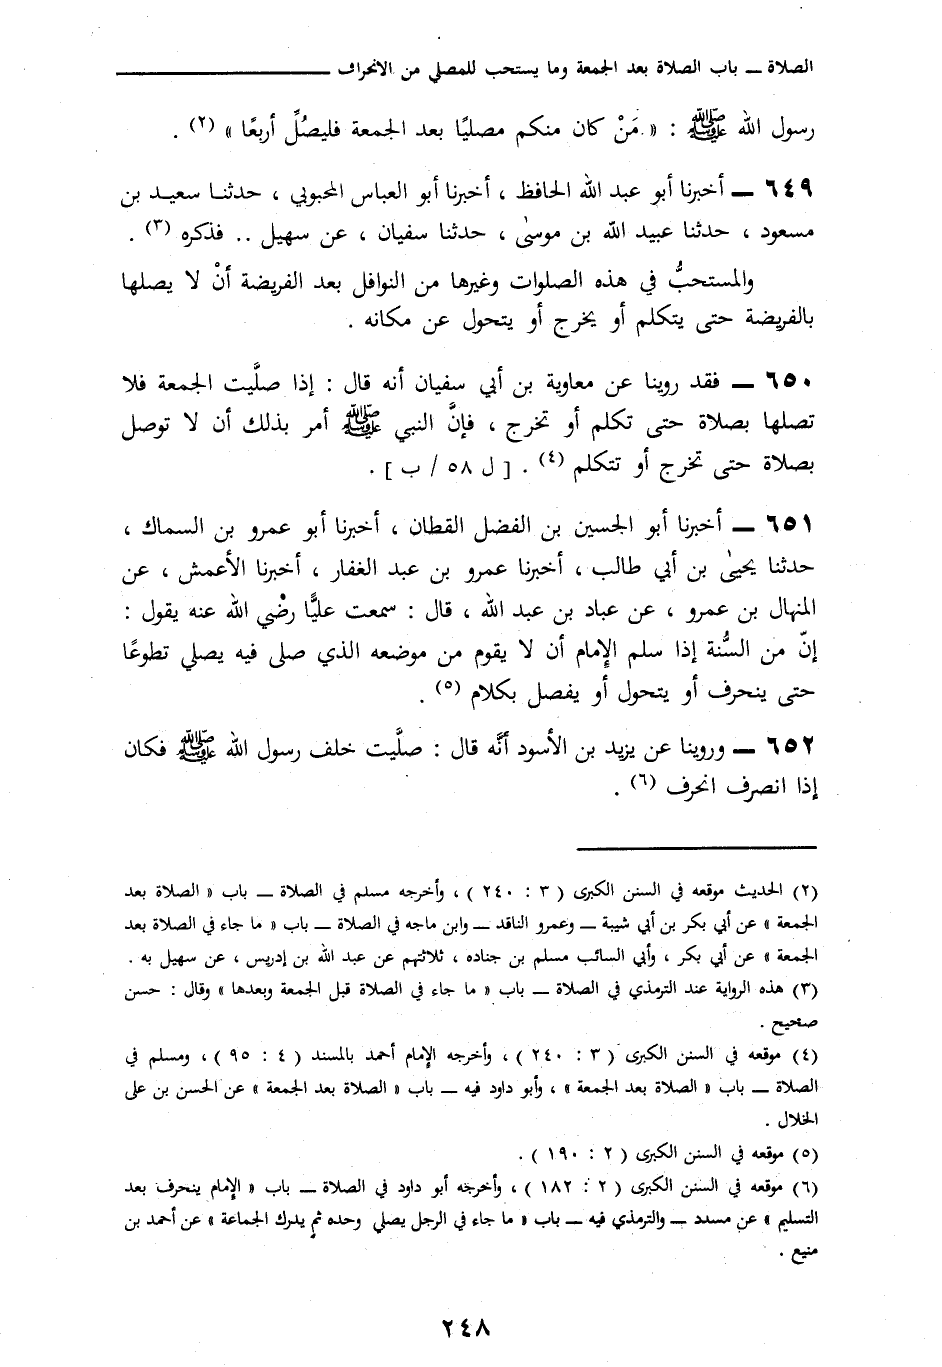 الصلاة ــ باب الصلاة بعد الجمعة وما يستحب للمصلي من الانحراف
رسول الله ﷺ : « مَنْ كان منكم مصليًا بعد الجمعة فليصُلِّ أربعًا » (٢) .
٦٤٩ ــ أخبرنا أبو عبد الله الحافظ ، أخبرنا أبو العباس المحبوبي ، حدثنا سعيد بن
مسعود ، حدثنا عبيد الله بن موسىٰ ، حدثنا سفيان ، عن سهيل .. فذكره (٣) .
والمستحبُّ في هذه الصلوات وغيرها من النوافل بعد الفريضة أنْ لا يصلها
بالفريضة حتى يتكلم أو يخرج أو يتحول عن مكانه .
٦٥٠ ــ فقد روينا عن معاوية بن أبي سفيان أنه قال : إذا صلَّيت الجمعة فلا
تصلها بصلاة حتى تكلم أو تخرج ، فإنَّ النبي ﷺ أمر بذلك أن لا توصل
بصلاة حتى تخرج أو تتكلم (٤) . [ ل ٥٨ / ب ] .
٦٥١ ــ أخبرنا أبو الحسين بن الفضل القطان ، أخبرنا أبو عمرو بن السماك ،
حدثنا يحيىٰ بن أبي طالب ، أخبرنا عمرو بن عبد الغفار ، أخبرنا الأعمش ، عن
المنهال بن عمرو ، عن عباد بن عبد الله ، قال : سمعت عليًّا رضْي الله عنه يقول :
إنّ من السُّنة إذا سلم الإمام أن لا يقوم من موضعه الذي صلى فيه يصلي تطوعًا
حتى ينحرف أو يتحول أو يفصل بكلام (٥) .
٦٥٢ ــ وروينا عن يزيد بن الأسود أنَّه قال : صلَّيت خلف رسول الله ﷺ فكان
إذا انصرف انحرف (٦) .
(٢) الحديث موقعه في السنن الكبرى ( ٣ : ٢٤٠ ) ، وأخرجه مسلم في الصلاة ــ باب « الصلاة بعد
الجمعة » عن أبي بكر بن أبي شيبة ــ وعمرو الناقد ــ وابن ماجه في الصلاة ــ باب « ما جاء في الصلاة بعد
الجمعة » عن أبي بكر ، وأبي السائب مسلم بن جناده ، ثلاثتهم عن عبد الله بن إدريس ، عن سهيل به .
(٣) هذه الرواية عند الترمذي في الصلاة ــ باب « ما جاء في الصلاة قبل الجمعة وبعدها » وقال : حسن
صحيح .
(٤) موقعه في السنن الكبرى ( ٣ : ٢٤٠ ) ، وأخرجه الإمام أحمد بالمسند ( ٤ : ٩٥ ) ، ومسلم في
الصلاة ــ باب « الصلاة بعد الجمعة » ، وأبو داود فيه ــ باب « الصلاة بعد الجمعة » عن الحسن بن على
الخلال .
(٥) موقعه في السنن الكبرى ( ٢ : ١٩٠ ) .
(٦) موقعه في السنن الكبرى ( ٢ : ١٨٢ ) ، وأخرجه أبو داود في الصلاة ــ باب « الإمام ينحرف بعد
التسليم » عن مسدد ــ والترمذي فيه ــ باب « ما جاء في الرجل يصلي وحده ثم يدرك الجماعة » عن أحمد بن
منيع .
٢٤٨